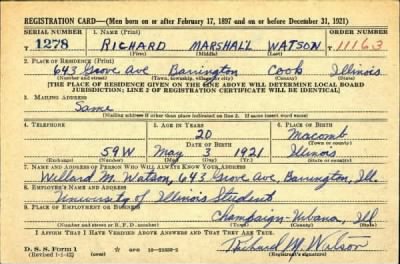 REGISTRATION CARD—(Men born on or after February 17, 1897 and on or before December 31, 1921)
SERIAL NUMBER 1. NAME (Print) ORDER NUMBER
T 1278 RICHARD MARSHALL WATSON T 11163
(First) (Middle) (Last)
2. PLACE OF RESIDENCE (Print)
643 Grove Ave Barrington Cook Illinois
(Number and street) (Town, township, village, or city) (County) (State)
[THE PLACE OF RESIDENCE GIVEN ON THE LINE ABOVE WILL DETERMINE LOCAL BOARD
JURISDICTION; LINE 2 OF REGISTRATION CERTIFICATE WILL BE IDENTICAL]
3. MAILING ADDRESS
Same
[Mailing address if other than place indicated on line 2. If same insert word same]
4. TELEPHONE 5. AGE IN YEARS 6. PLACE OF BIRTH
20 Macomb
DATE OF BIRTH (Town or county)
59W May 3 1921 Illinois
(Exchange) (Number) (Mo.) (Day) (Yr.) (State or country)
7. NAME AND ADDRESS OF PERSON WHO WILL ALWAYS KNOW YOUR ADDRESS
Willard M. Watson, 643 Grove Ave, Barrington, Ill.
8. EMPLOYER'S NAME AND ADDRESS
University of Illinois Student
9. PLACE OF EMPLOYMENT OR BUSINESS
Champaign-Urbana, Ill
(Number and street or R. F. D. number) (Town) (County) (State)
I AFFIRM THAT I HAVE VERIFIED ABOVE ANSWERS AND THAT THEY ARE TRUE.
D. S. S. Form 1
(Revised 1-1-42) (over) Richard M. Watson